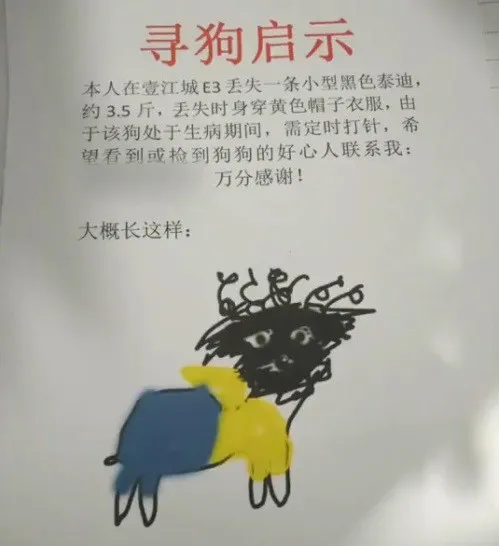 寻狗启示
本人在壹江城 E3 丢失一条小型黑色泰迪，
约 3.5 斤，丢失时身穿黄色帽子衣服，由
于该狗处于生病期间，需定时打针，希
望看到或捡到狗狗的好心人联系我：
万分感谢！
大概长这样：